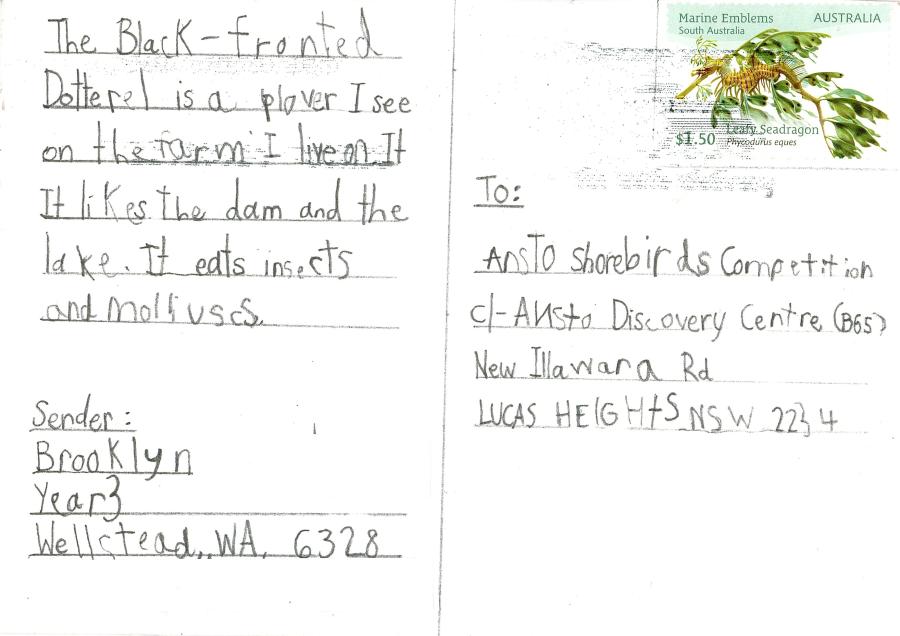 The Black-fronted
Dotterel is a plover I see
on the farm I live on. It
It likes the dam and the
lake. It eats insects
and molliuscs.
Sender:
Brooklyn
Year 3
Wellstead,, WA, 6328
Marine Emblems
South Australia
AUSTRALIA
$1.50
Leafy Seadragon
Phycodurus eques
To:
Ansto Shorebirds Competition
c/- Ansto Discovery Centre (B65)
New Illawara Rd
LUCAS HEIGHtS NSW 2234